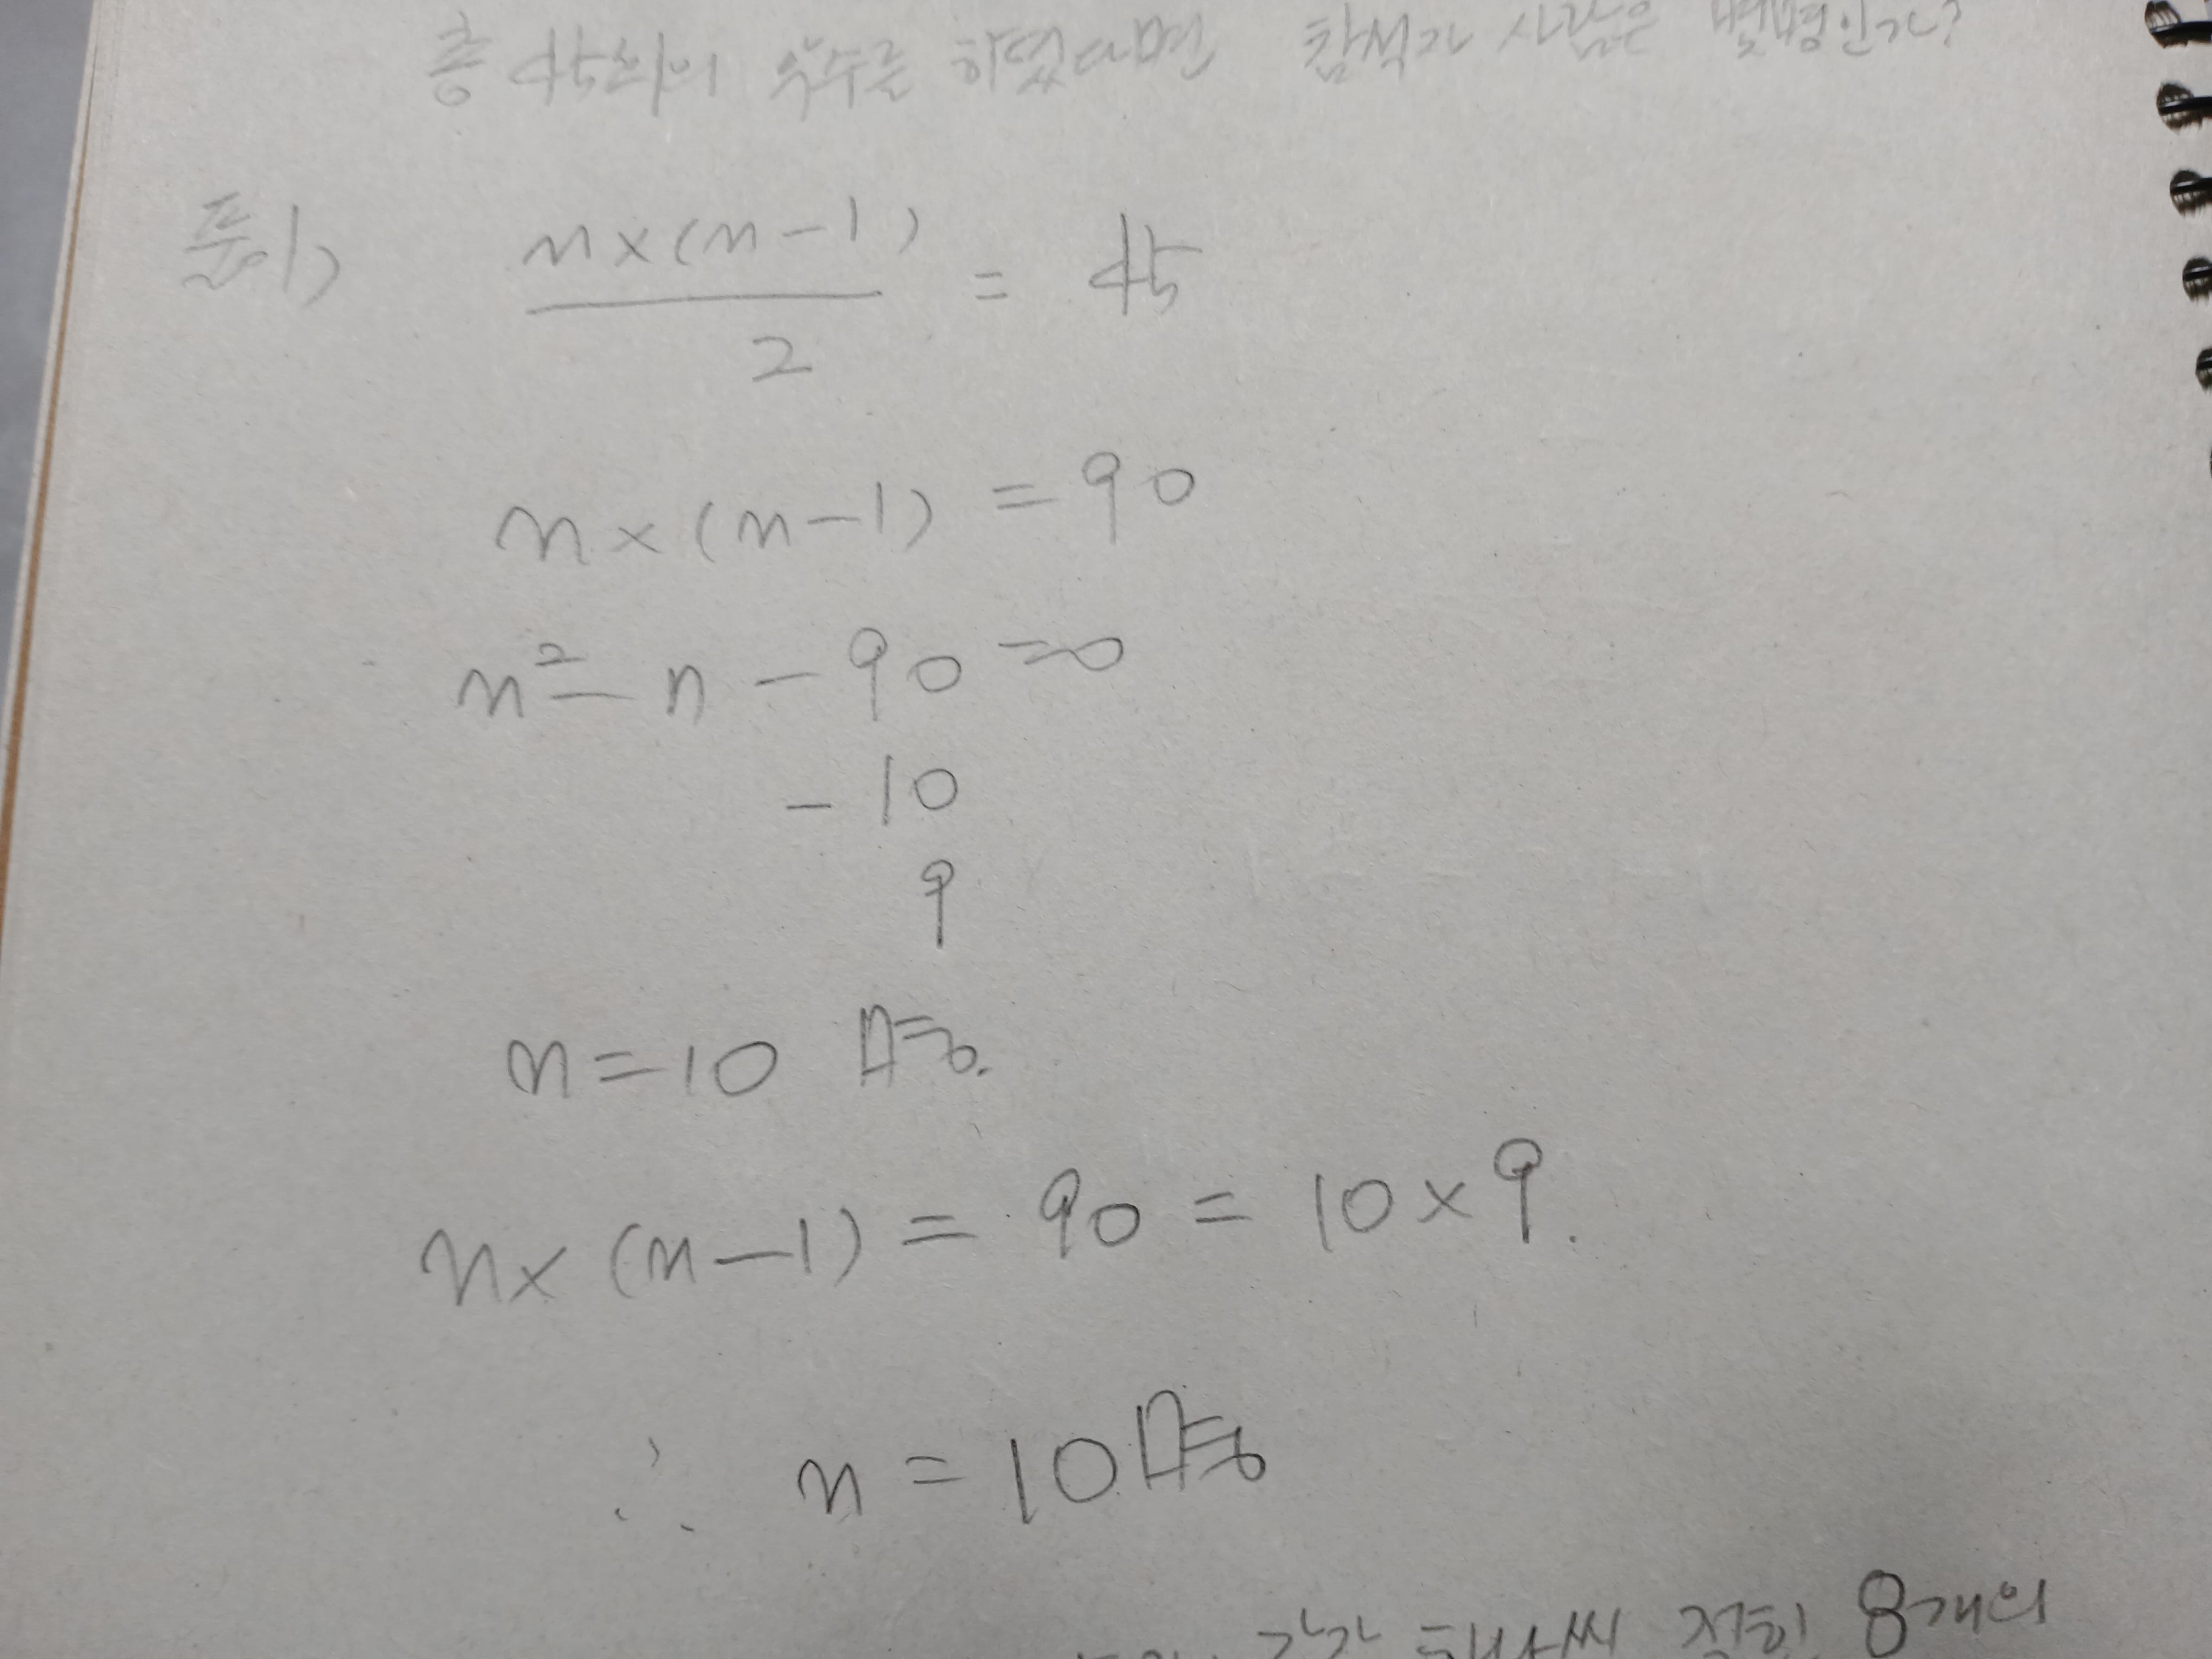 총 45회의 악수를 하였다면 참석자 사람은 몇명인가?
풀이) n×(n-1) / 2 = 45
n×(n-1) = 90
n² - n - 90 = 0
- 10
9
n = 10 명.
n×(n-1) = 90 = 10×9.
∴ n = 10명
각각 하나씩 적힌 8개의